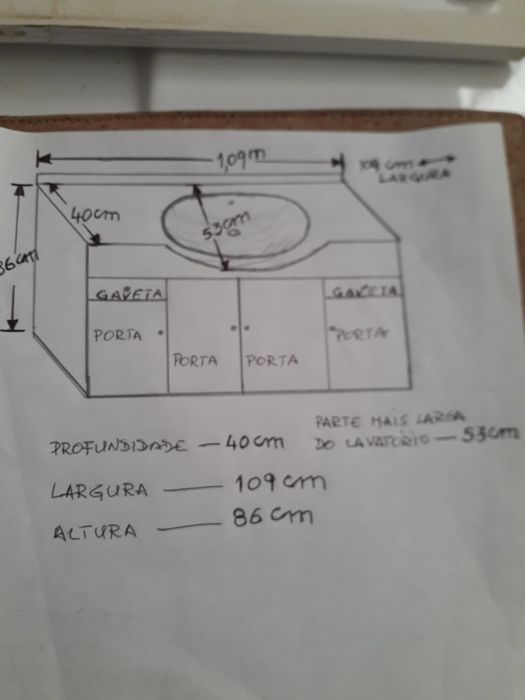 1,09m
109 cm
LARGURA
40cm
53cm
86cm
GAVETA
GAVETA
PORTA
PORTA
PORTA
PORTA
PARTE MAIS LARGA
PROFUNDIDADE — 40cm
DO LAVATÓRIO — 53cm
LARGURA — 109cm
ALTURA — 86cm